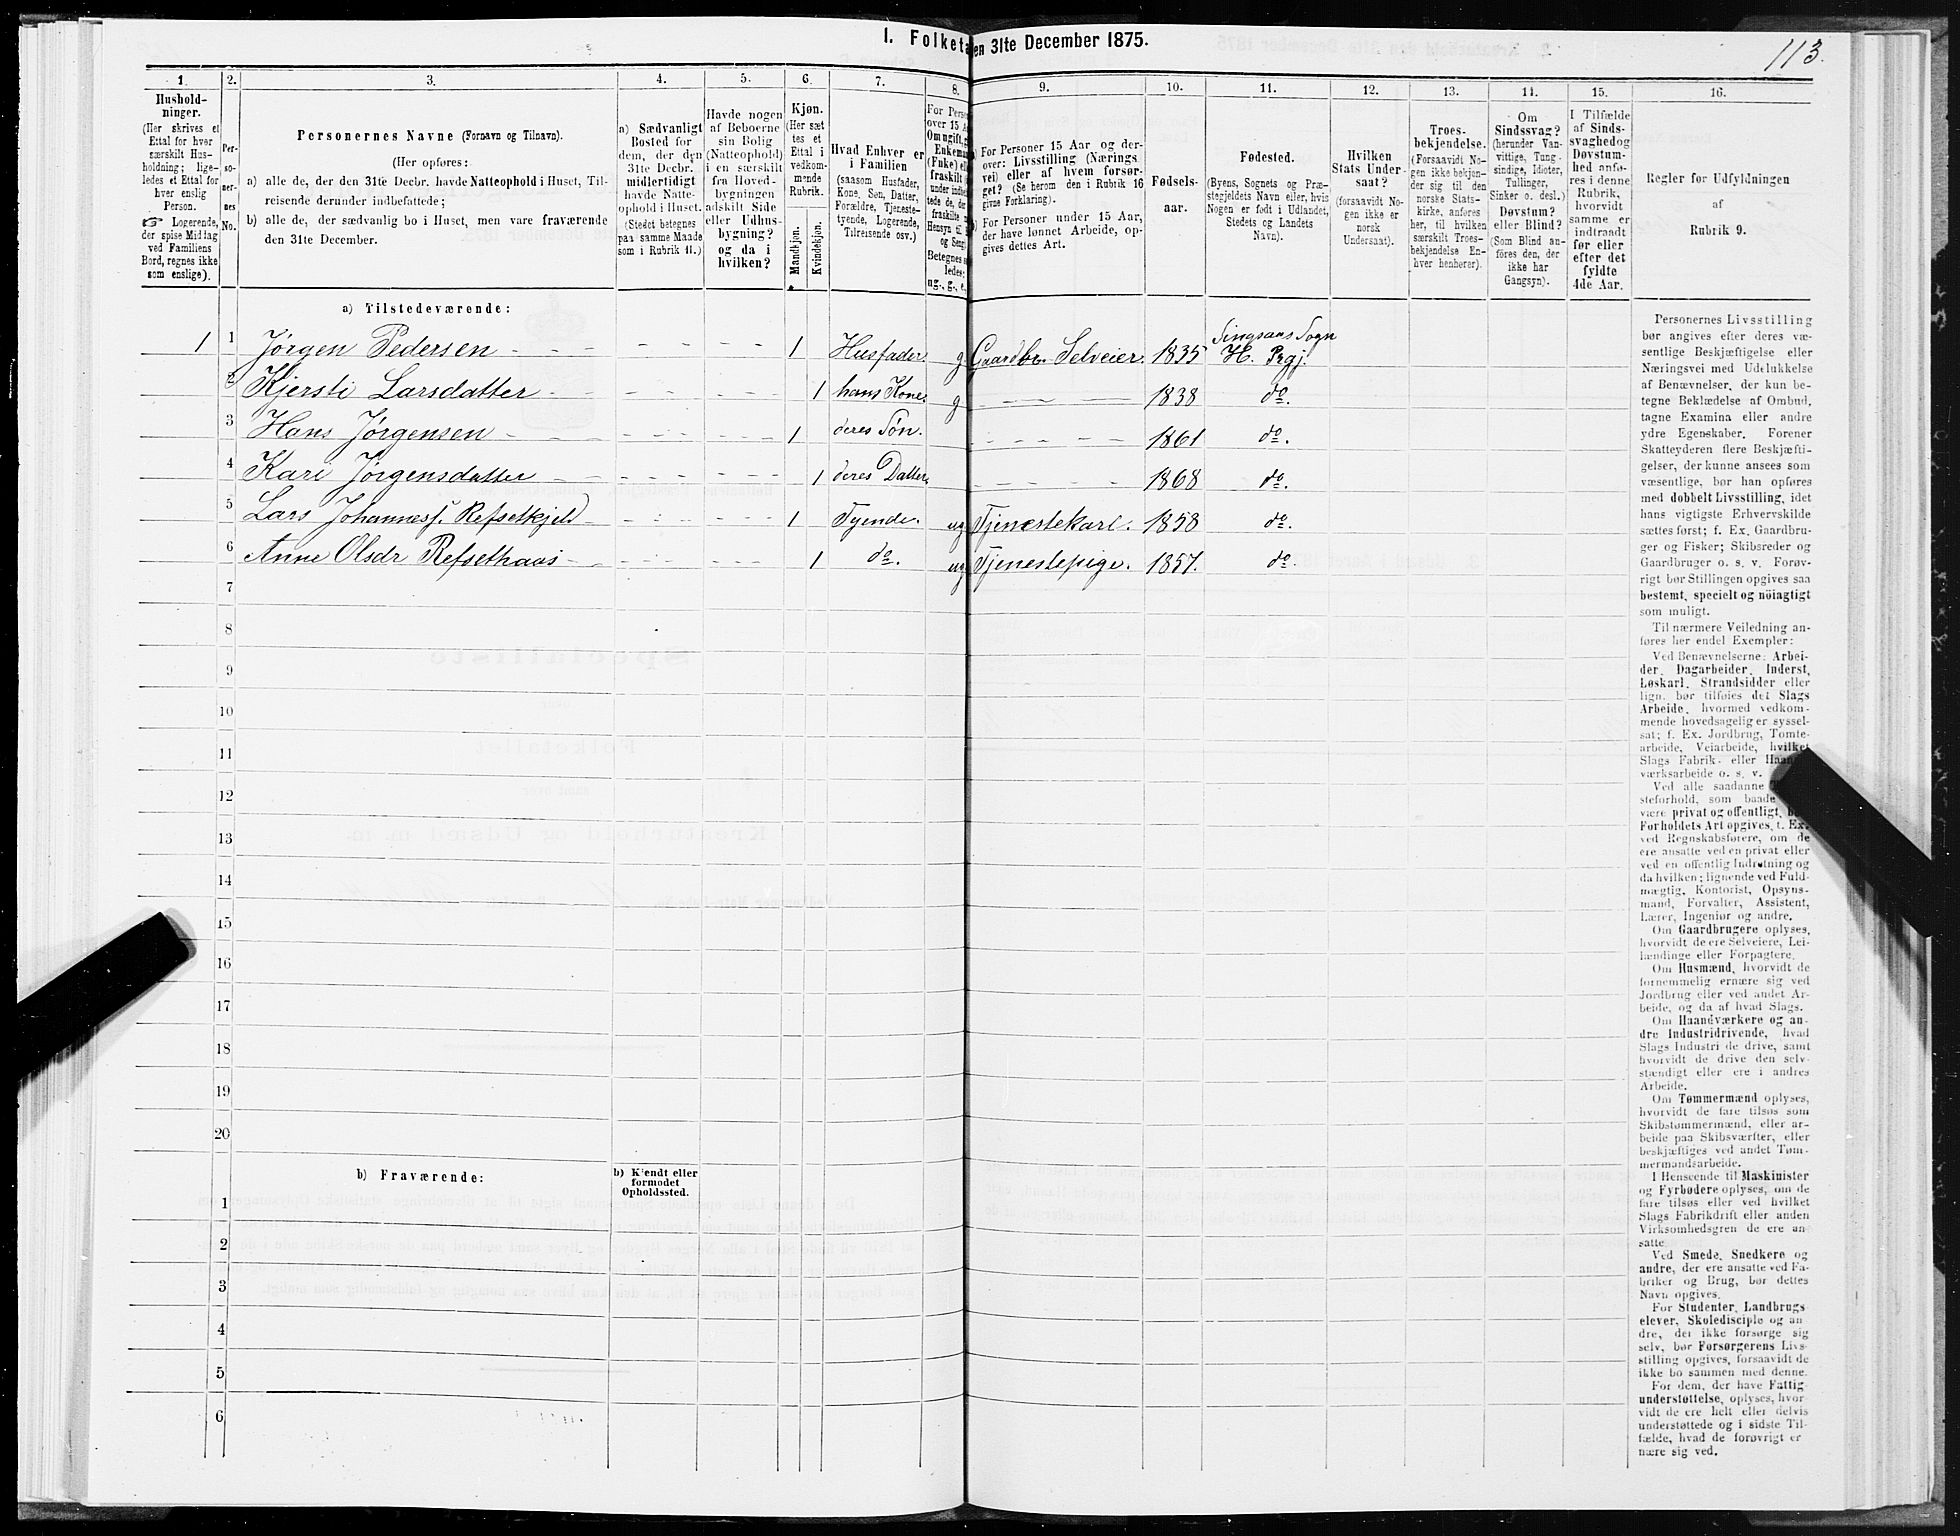 I. Folketa en 31te December 1875.
113.
1. 2. 3. 4. 5. 6. 7. 8. 9. 10. 11. 12. 13. 14. 15. 16.
Hushold-
ninger.
(Her skrives et
Ettal for hver
særskilt Hus-
holdning; lige-
ledes et Ettal for
hver enslig
Person.
☞ Logerende,
der spise Middag
ved Familiens
Bord, regnes ikke
som enslige).
Per-
so-
ner-
nes
No.
Personernes Navne (Fornavn og Tilnavn).
(Her opføres:
a) alle de, der den 31te Decbr. havde Natteophold i Huset, Til-
reisende derunder indbefattede;
b) alle de, der sædvanlig bo i Huset, men vare fraværende
den 31te December.
a) Sædvanligt
Bosted for
dem, der den
31te Decbr.
midlertidigt
havde Natte-
ophold i Huset.
(Stedet betegnes
paa samme Maade
som i Rubrik 11.)
Havde nogen
af Beboerne
sin Bolig
(Natteophold)
i en særskilt
fra Hoved-
bygningen
adskilt Side
eller Udhus-
bygning?
og da i
hvilken?
Kjøn.
(Her sæt
tes et
Ettal i
vedkom-
mende
Rubrik.
Mandkjøn.
Kvindekjøn.
Hvad Enhver er
i Familien
(saasom Husfader,
Kone, Søn, Datter,
Forældre, Tjeneste-
tyende, Logerende,
Tilreisende osv.)
For Perso
over 15 A
Om ugift, g
Enkema
(Fuke) el
fraskilt
Betegnes s
ledes:
ug., g., e.,
a) For Personer 15 Aar og der-
over: Livsstilling (Nærings
vei) eller af hvem forsør-
get? (Se herom den i Rubrik 16
givne Forklaring).
b) For Personer under 15 Aar,
der have lønnet Arbeide, op-
gives dettes Art.
Fødsels-
aar.
Fødested.
(Byens, Sognets og Præ-
stegjeldets Navn eller, hvis
Nogen er født i Udlandet,
Stedets og Landets
Navn).
Hvilken
Stats Under-
saat?
(forsaavidt No-
gen ikke er
norsk
Undersaat).
Troes-
bekjendelse.
(Forsaavidt No-
gen ikke bekjen-
der sig til den
norske Stats-
kirke, anføres
her, til hvilken
særskilt Troes-
bekjendelse En-
hver henhører).
Om
Sindssvag?
(herunder Van-
vittige, Tung-
sindige, Idioter,
Tullinger,
Sinker o. desl.)
Døvstum?
eller Blind?
(Som Blind an-
føres den, der
ikke har
Gangsyn).
I Tilfælde
af Sinds-
svaghed og
Døvstum-
hed anfø-
res i denne
Rubrik,
hvorvidt
samme er
indtraadt
før eller
efter det
fyldte
4de Aar.
Regler for Udfyldningen
af
Rubrik 9.
a) Tilstedeværende:
1 1 Jørgen Pedersen 1 Husfader g. Gaardbr. Selveier. 1835 Singsaas Sogn
H. Prgj.
2 Kjersti Larsdatter 1 hans Kone g 1838 do.
3 Hans Jørgensen 1 deres Søn. 1861 do.
4 Kari Jørgensdatter 1 deres Datter 1868 do.
5 Lars Johannesf. Refsetkjeld 1 Tyende. ug Tjenestekarl. 1858 do.
6 Anne Olsdr Refsethaas 1 do. ug Tjenestepige. 1857. do.
7
8
9
10
11
12
13
14
15
16
17
18
19
20
b) Fraværende:
b) Kjendt eller
formodet
Opholdssted.
1
2
3
4
5
6
Personernes Livsstilling
bør angives efter deres væ-
sentlige Beskjæftigelse eller
Næringsvei med Udelukkelse
af Benævnelser, der kun be-
tegne Beklædelse af Ombud,
tagne Examina eller andre
ydre Egenskaber. Forener
Skatteyderen flere Beskjæfti-
gelser, der kunne ansees som
væsentlige, bør han opføres
med dobbelt Livsstilling, idet
hans vigtigste Erhvervskilde
sættes først; f. Ex. Gaardbru-
ger og Fisker; Skibsreder og
Gaardbruger o. s. v. Forøv-
rigt bør Stillingen opgives saa
bestemt, specielt og nöiagtigt
som muligt.
Til nærmere Veiledning an-
føres her endel Exempler:
Ved Benævnelserne: Arbei-
der, Dagarbeider, Inderst,
Løskarl, Strandsidder eller
lign. bør tilføies det Slags
Arbeide, hvormed vedkom-
mende hovedsagelig er syssel-
sat; f. Ex. Jordbrug, Tomte-
arbeide, Veiarbeide, hvilket
Slags Fabrik- eller Haand
værksarbeide o. s. v.
Ved alle saadanne
steforhold, som baade
være privat og offentligt, 
Forholdets Art opgives, t. Ex.
ved Regnskabsførere, om de
ere ansatte ved en privat eller
ved en offentlig Indretning og
da hvilken; lignende ved Fuld-
mægtig, Kontorist, Opsyns-
mand, Forvalter, Assistent,
Lærer, Ingeniør og andre.
Om Gaardbrugere oplyses,
hvorvidt de ere Selveiere, Lei-
lændinge eller Forpagtere.
Om Husmænd, hvorvidt de
fornemmelig ernære sig ved
Jordbrug eller ved andet Ar-
beide, og da af hvad Slags.
Om Haandværkere og an-
dre Industridrivende, hvad
Slags Industri de drive, samt
hvorvidt de drive den selv-
stændigt eller ere i andres
Arbeide.
Om Tømmermænd oplyses,
hvorvidt de fare tilsøs som
Skibstømmermænd, eller ar-
beide paa Skibsværfter, eller
beskjæftiges ved andet Tøm-
mermandsarbeide.
I Henseende til Maskinister
og Fyrbødere oplyses, om de
fare tilsøs eller ved hvilket
Slags Fabrikdrift eller anden
Virksomhedsgren de ere an-
satte
Ved Smede, Snedkere og
andre, der ere ansatte ved Fa-
briker og Brug, bør dettes
Navn opgives.
For Studenter, Landbrugs
elever, Skoledisciple og an
dre, der ikke forsørge sig
selv, bør Forsørgerens Livs-
stilling opgives, forsaavidt de
ikke bo sammen med denne.
For dem, der have Fattig
understøttelse, oplyses, hvor-
vidt de ere helt eller delvis
understøttede og i sidste Til-
fælde, hvad de forøvrigt er
nære sig ved.